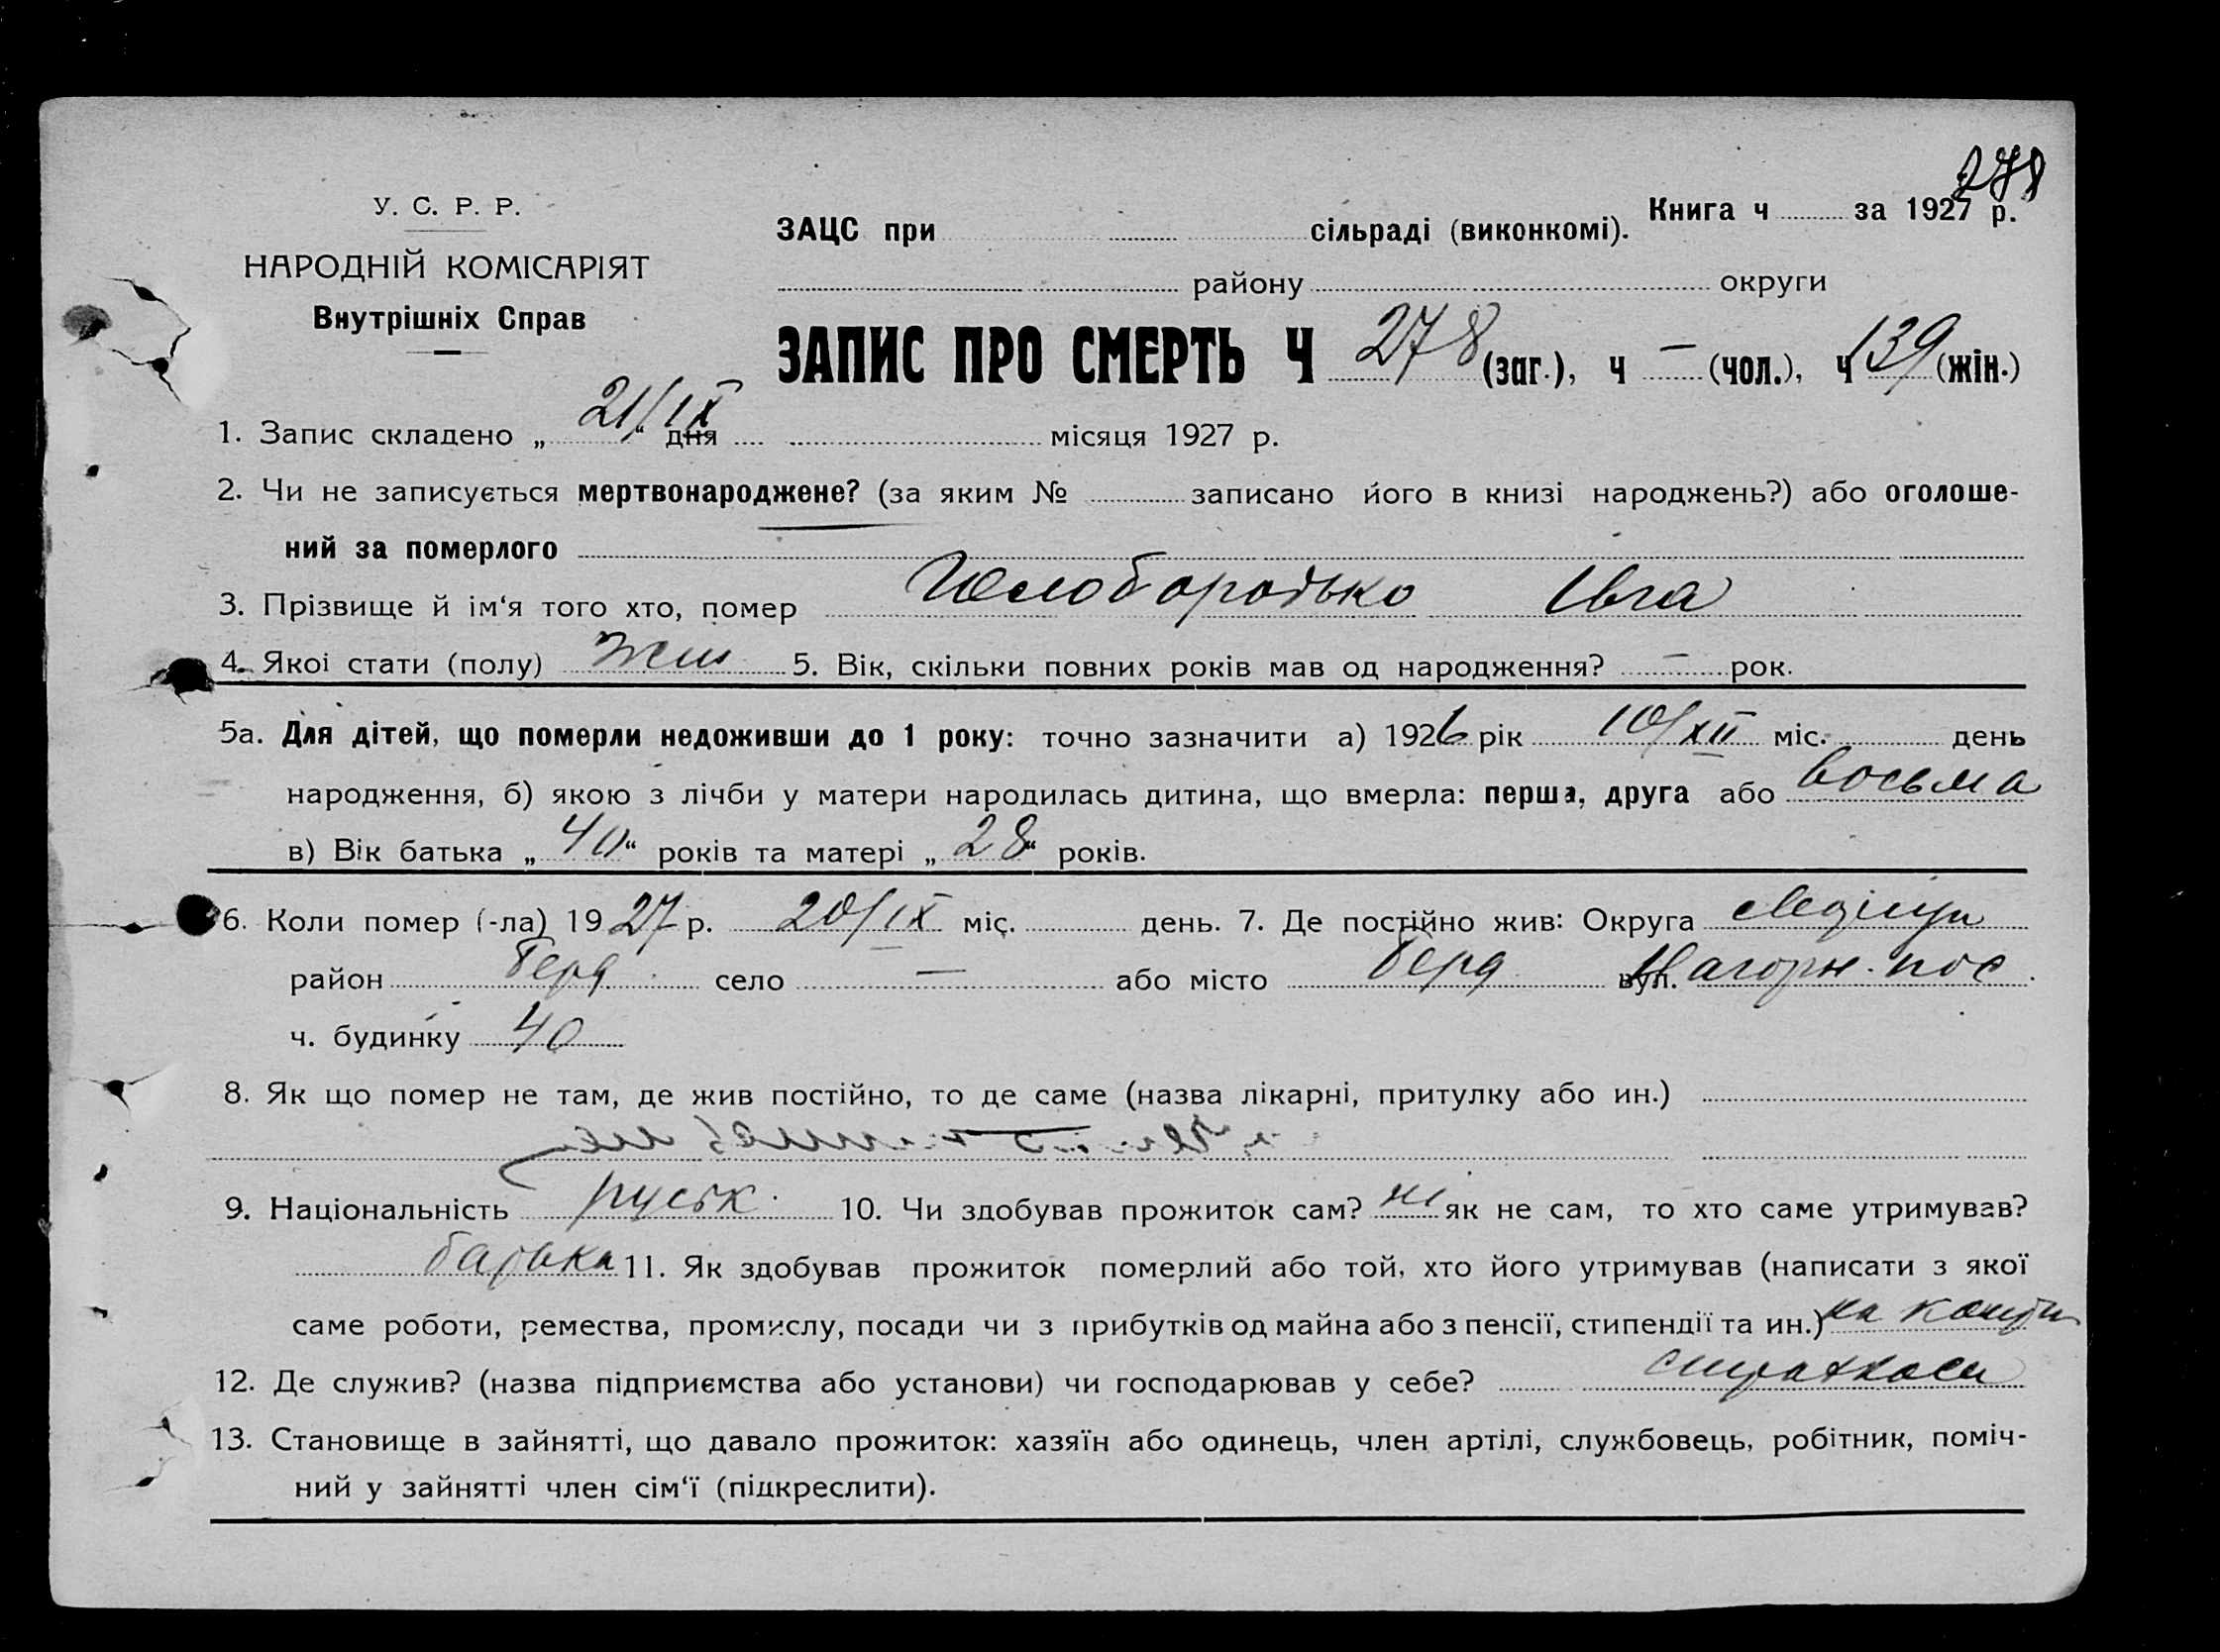 278
У. С. Р. Р.
НАРОДНІЙ КОМІСАРІЯТ
Внутрішніх Справ
Книга ч за 1927 р.
ЗАЦС при сільраді (виконкомі).
району округи
ЗАПИС ПРО СМЕРТЬ Ч 278 (заг.), ч — (чол.), ч 139 (жін.)
1. Запис складено „ 21/IX “ дня місяця 1927 р.
2. Чи не записується мертвонароджене? (за яким № записано його в книзі народжень?) або оголоше-
ний за померлого
3. Прізвище й ім‘я того хто, помер Івга
4. Якоі стати (полу) жін 5. Вік, скільки повних років мав од народження? — рок.
5а. Для дітей, що померли недоживши до 1 року: точно зазначити а) 1926 рік 10/XII міс. день
народження, б) якою з лічби у матери народилась дитина, що вмерла: перша, друга або восьма
в) Вік батька „ 40 “ років та матері „ 28 “ років.
6. Коли помер (-ла) 1927 р. 20/IX міс. день. 7. Де постійно жив: Округа
район Берд. село — або місто Берд вул. Нагорн. пос.
ч. будинку 40
8. Як що помер не там, де жив постійно, то де саме (назва лікарні, притулку або ин.)
9. Національність руськ. 10. Чи здобував прожиток сам? ні як не сам, то хто саме утримував?
батька 11. Як здобував прожиток померлий або той, хто його утримував (написати з якої
саме роботи, ремества, промислу, посади чи з прибутків од майна або з пенсії, стипендії та ин.) на кошти
12. Де служив? (назва підприємства або установи) чи господарював у себе? страхкаси
13. Становище в зайнятті, що давало прожиток: хазяїн або одинець, член артілі, службовець, робітник, поміч-
ний у зайнятті член сім‘ї (підкреслити).